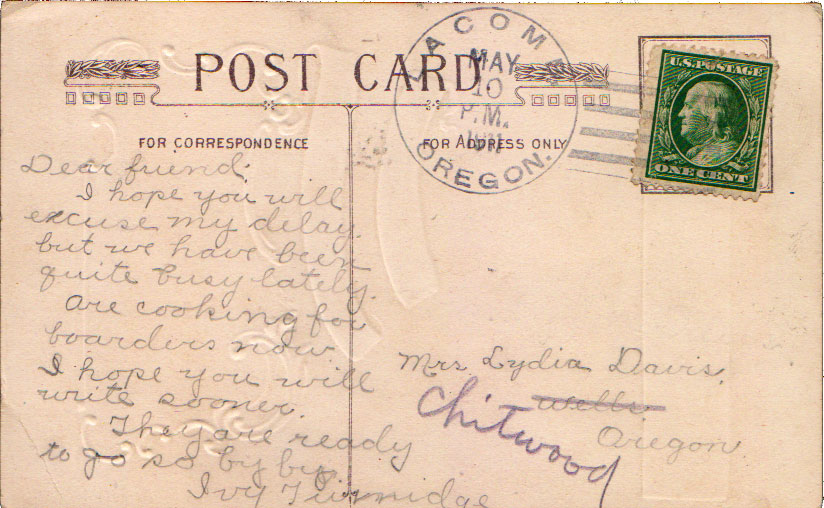 POST CARD
FOR CORRESPONDENCE
FOR ADDRESS ONLY
LACOMB
MAY
10
P.M.
1911
OREGON.
U.S. POSTAGE
ONE CENT
Dear friend,
I hope you will
excuse my delay
but we have been
quite busy lately.
Are cooking for
boarders now.
I hope you will
write sooner.
They are ready
to go so by by
Ivy
Mrs Lydia Davis,
Wells
Chitwood
Oregon